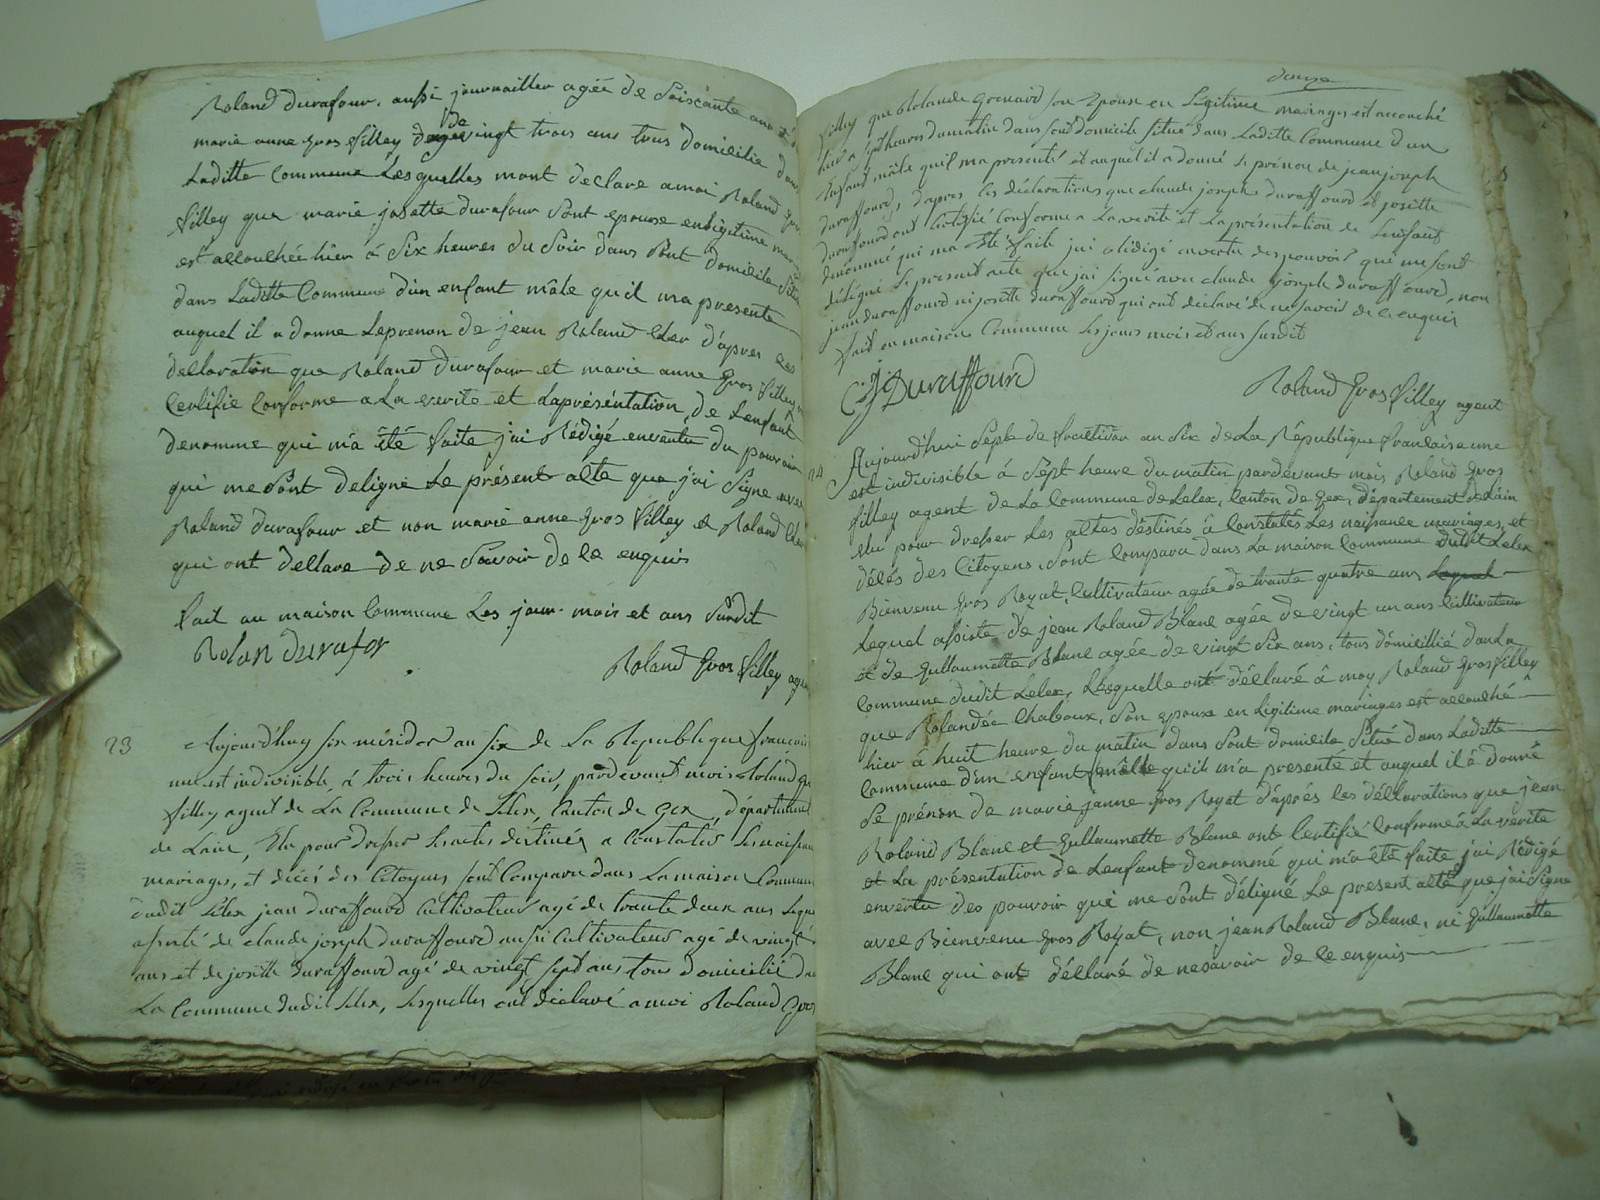 Roland durafour, aussi journaillier agée de Soisçante ans
marie anne gros filley de vingt trois ans tous domicilié dans
Laditte Commune Lesquelles mont declare a moi Roland gros
filley que marie josette durafour Sont epouse enligitime
est accouchée hier à Six heures du Soir dans Sont domicile
dans Laditte Commune d'un enfant mâle qu'il ma presente
auquel il a donne Leprenon de jean Roland d'apres les
declaration que Roland durafour et marie anne gros filley
Certifie Conforme a La verite et Lapréséntation de Lenfant
denomme qui m'a été faite j'ai Rédigé enventu du pouvoir
qui me Sont deligné Le présent acte que j'ai Signe avec
Roland durafour et non marie anne gros filley et Roland
qui ont dellare de ne Savoir de ce enquis
fait au maison Commune Les jour mois et ans Surdit
Rolan durafor
Roland gros filley agent
23 Aujourd'huy six méssidor an six de La République francoise
une et indivisible, à trois heures du soir, pardevant mois Roland gros
filley agent de La Commune de Lelex, Canton de gex, département
de Lain, Elu pour dresser Les actes destinés a Constater Les naissance
mariages, et décés des Citoyens Sont Comparu dans La maison Commune
dudit Lélex jean duraffourd Cultivateur agé de trante deux ans Lequel
assisté de claude joseph duraffourd aussi Cultivateur agé de vingt
ans et de josette duraffourd agé de vingt sept ans tous domicilié dans
La Commune dudit Lélex, Lesquelles ont déclaré a moi Roland gros
douze
filley que Rolande grosnard son Epouse en Légitime mariages est accouché
hier a sept heures du matin dans sont domicile situé dans Laditte Commune d'un
Enfant mâle quil ma presenté et auquel il a donné Le prénon de jean joseph
duraffourd, d'apres Les déclarations que claude joseph duraffourd et josette
duraffourd ont Certifié Conforme a La verite et La présentation de Lenfant
dénommé qui ma été faite jai rédigé en vertu des pouvoir qui me sont
délégué Le present acte que jai signé avec claude joseph duraffourd, non
jean duraffourd ni josette duraffourd qui ont déclaré de ne savoir de ce enquis
fait en maison Commune Les jours mois et ans surdit
CJ Duraffourd
Roland gros filley agent
24 Aujourd'hui Sept de fructidor an Six de La République francaise une
est indivisible à Sept heure du matin pardevant mois Roland gros
filley agent de La Commune de Lelex, Canton de gex, département de Lain
élu pour dresser Les actes déstinés à Constatés Les naisance mariages, et
décés des Citoyens, Sont Comparu dans La maison Commune dudit Lelex
Bienvenu gros Royat, Cultivateur agée de trante quatre ans
Lequel assiste de jean Roland Blanc agée de vingt un ans Cultivateur
et de gullaumette Blanc agée de vingt Six ans, tous domicillié dans La
Commune dudit Lelex, Lesquelle ont déclaré à moy Roland gros filley
que Rolandée Chaboux, Son epouse en Ligitime mariages est accouché
hier à huit heure du matin dans Sont domicile Situé dans Laditte
Commune d'un enfant qu'il m'a presente et auquel il à donné
Le prénon de marie janne gros Royat d'aprés les déclarations que jean
Roland Blanc et gullaumette Blanc ont Certifié Conforme à La verite
et La présentation de Lenfant denommé qui m'a été faite j'ai Rédigé
envertu des pouvoir qui me Sont déligné Le present acte que j'ai Signe
avec Bienvenu gros Royat, non jean Roland Blanc, ni gullaumette
Blanc qui ont déllaré de nesavoir de ce enquis